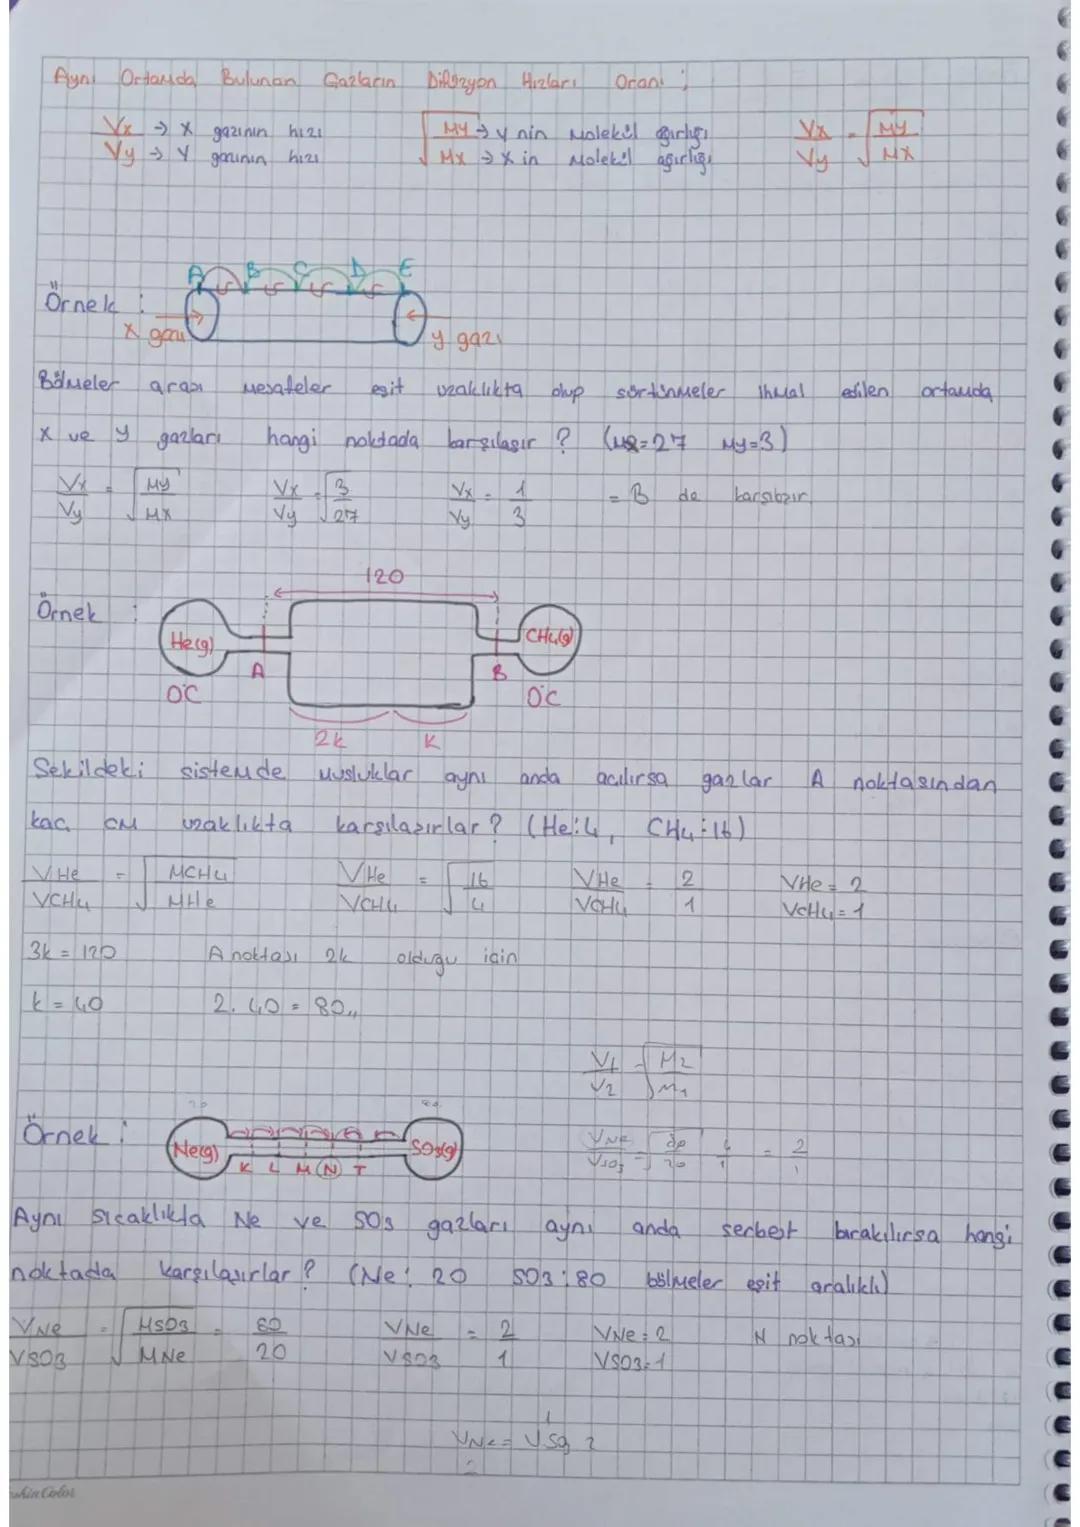 Aynı Ortamda Bulunan Gazların Difüzyon Hızları Oranı ;
Vx → x gazının hızı
Vy → y gazının hızı
√ My → y nin Molekül ağırlığı
Mx → x in Molekül ağırlığı
Vx / Vy = √ My / Mx
A B C D E
Örnek :
x gazı
y gazı
Bölmeler arası Mesafeler eşit uzaklıkta olup sürtünmeler ihmal edilen ortamda
x ve y gazları hangi noktada karşılaşır ? (Mx=27 My=3)
Vx / Vy = √ My / Mx   Vx / Vy = √ 3 / 27   Vx / Vy = 1 / 3   = B de karşılaşır
120
Örnek :
He(g) CH4(g)
A B
0°C 0°C
2k k
Şekildeki sistemde musluklar aynı anda açılırsa gazlar A noktasından
kaç cm uzaklıkta karşılaşırlar ? (He:4, CH4:16)
VHe / VCH4 = √ MCH4 / MHe   VHe / VCH4 = √ 16 / 4   VHe / VCH4 = 2 / 1   VHe = 2
VCH4 = 1
3k = 120   A noktası 2k olduğu için
k = 40   2. 40 = 80,,
V1 / V2 = √ M2 / M1
20 80
Örnek :
Ne(g) SO3(g)
K L M N T
VNe / VSO3 = √ 80 / 20 4 / 1 = 2 / 1
Aynı sıcaklıkta Ne ve SO3 gazları aynı anda serbest bırakılırsa hangi
noktada karşılaşırlar ? (Ne: 20 SO3:80 bölmeler eşit aralıklı)
VNe / VSO3 = √ MSO3 / MNe = 80 / 20   VNe / VSO3 = 2 / 1   VNe = 2   N noktası
VSO3=1
1
VNe = VSO3
2